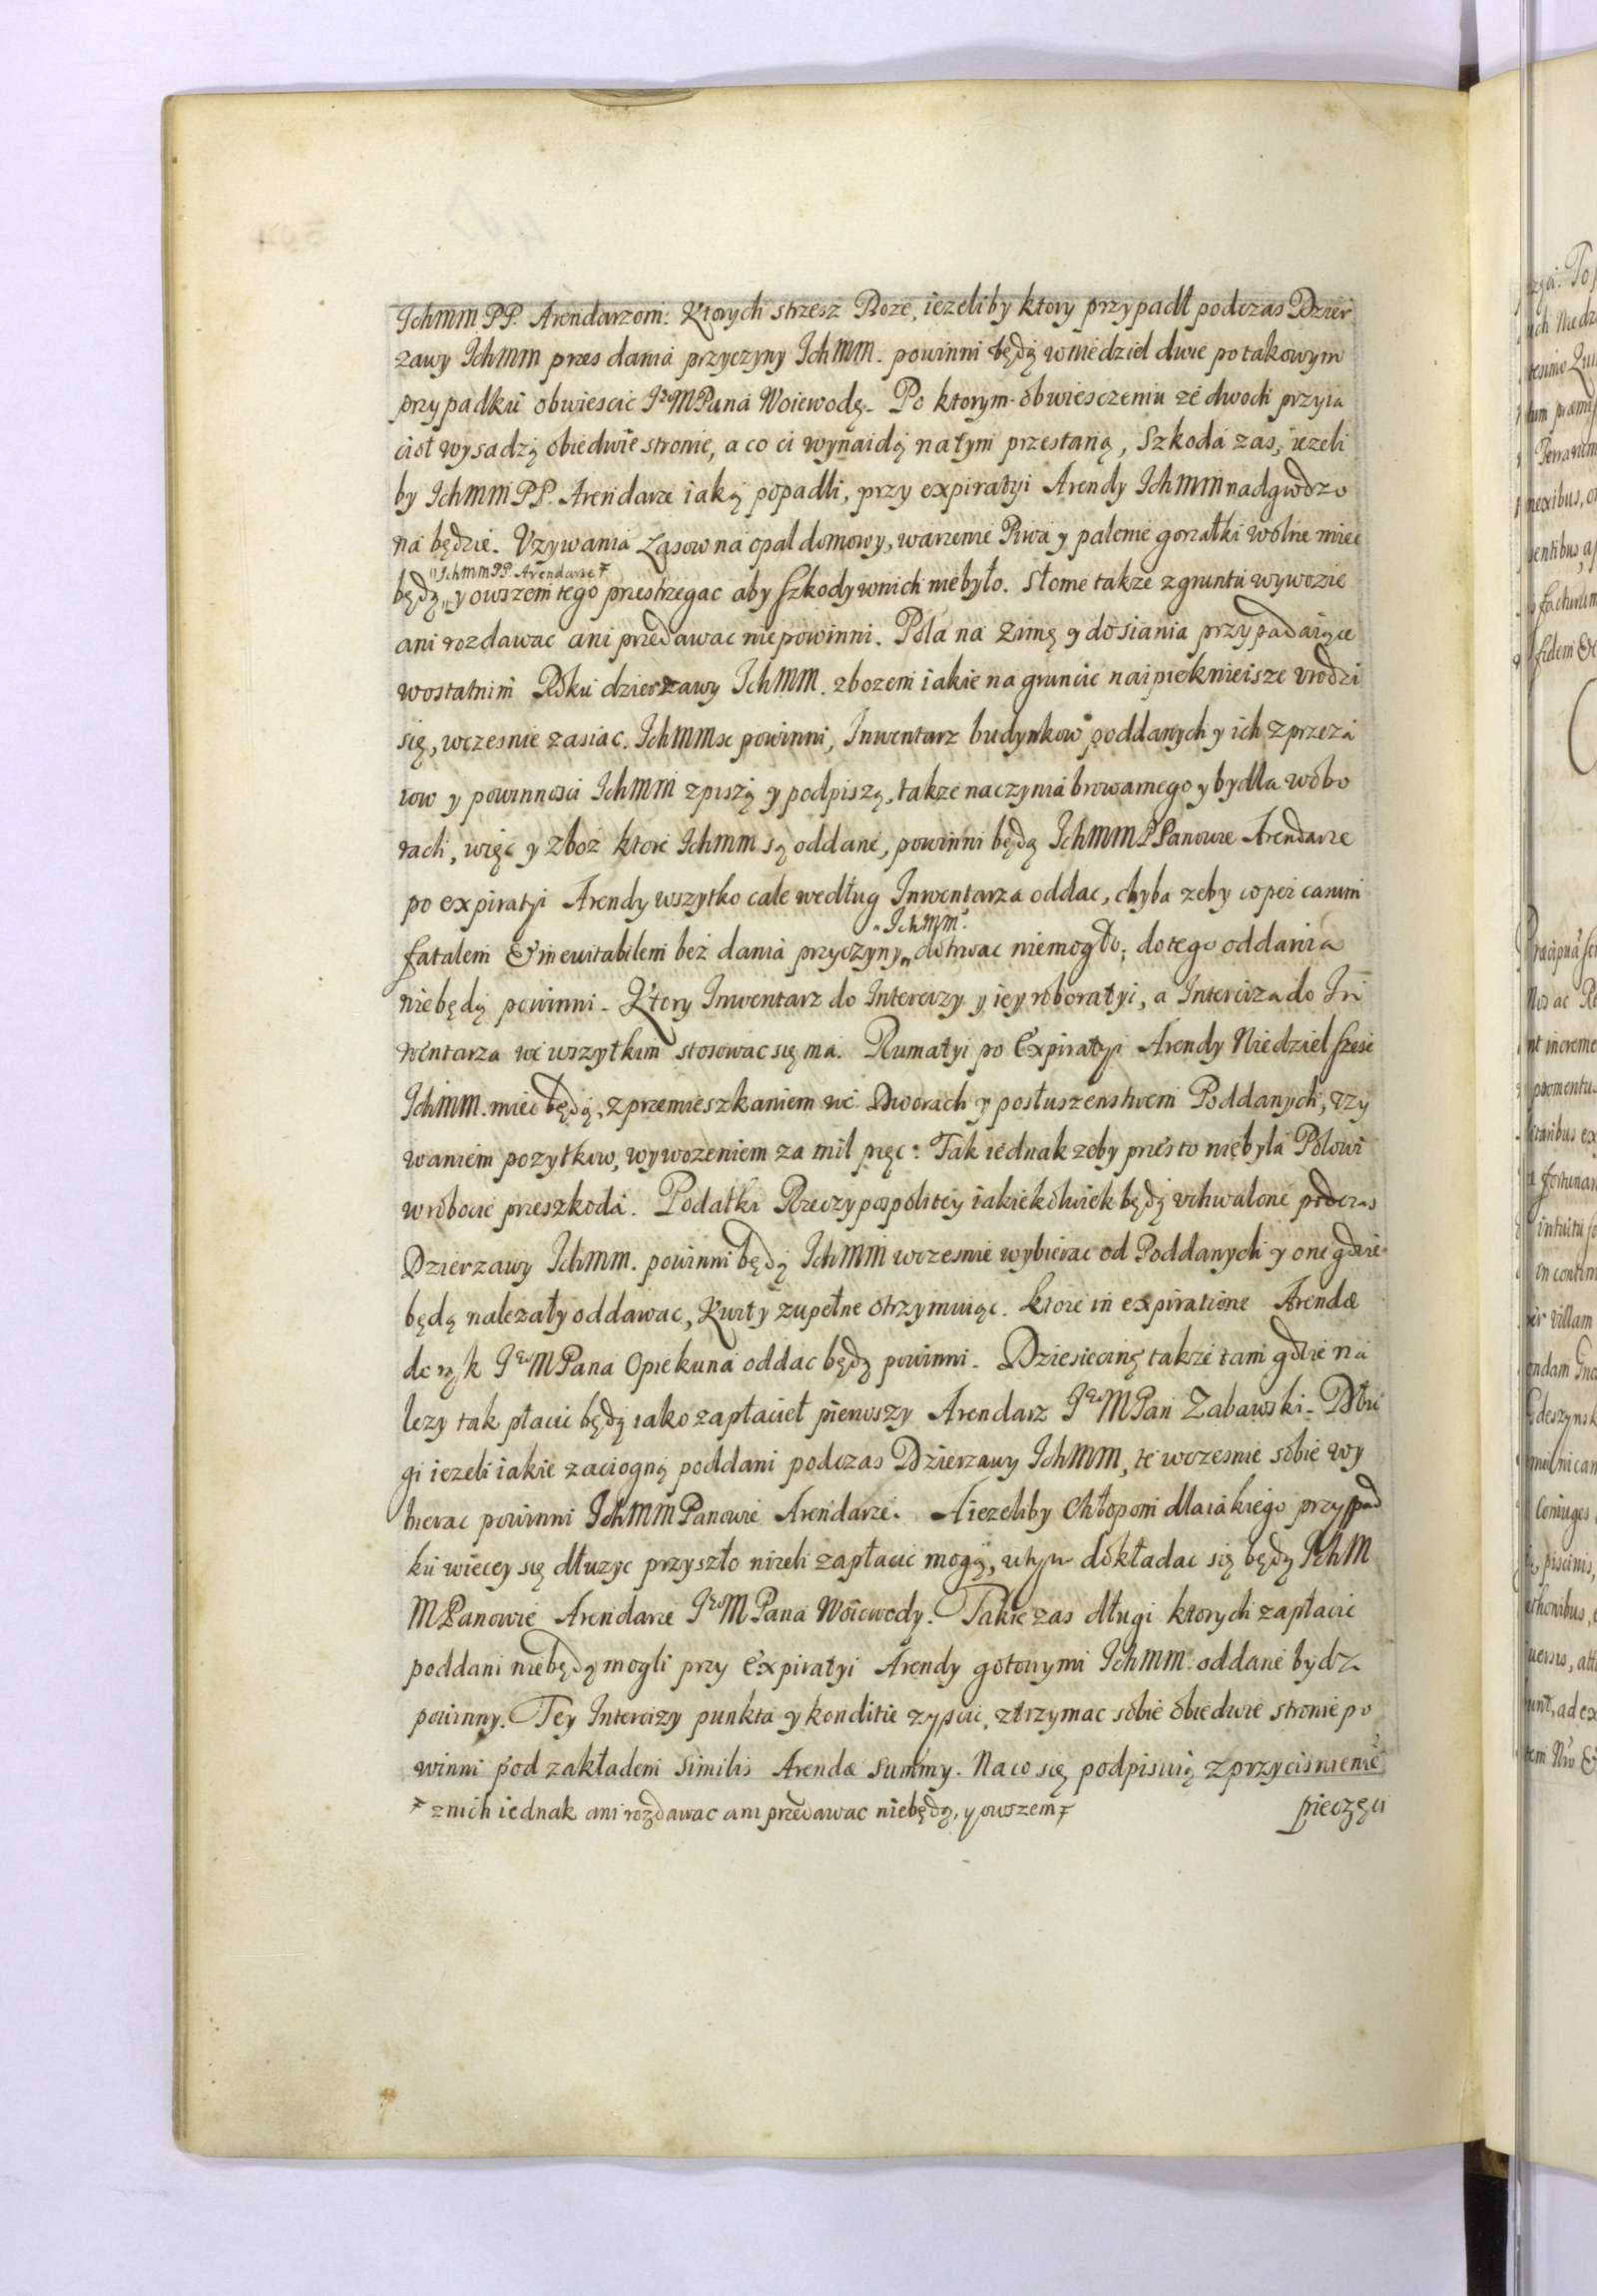 Ichmm PP. Arendarzom. Ktorych strzesz Boze, iezeliby ktory przypadł podczas Dzier
zawy Ichmm przes dania przyczyny Ichmm. powinni będą wniedziel dwie po takowym
przypadku obwiescic JeMPana Woiewodę. Po ktorym obwiesczeniu ze dwoch przyia
cioł wysadzą obiedwie stronie, a co ci wynaidą natym przestaną, Szkoda zas, iezeli
by Ichmm PP. Arendarze iaką popadli, przy expiratyi Arendy Ichmm nadgrodzo
na będzie. Vzywania Lasow na opal domowy, warzenie Piwa y palenie gorzałki wolne miec
"Ichmm PP. Arendarze ⨍
będą, "y owszem tego przestrzegac aby szkody wnich niebyło. Słome takze zgruntu wywozic
ani rozdawac ani przedawac niepowinni. Pola na zimę y dosiania przypadaiące
wostatnim Roku dzierzawy Ichmm. zbozem iakie na gruncie naipieknieisze vrodzi
się, wczesnie zasiac. Ichmmsc powinni, Inwentarz budynkow poddanych y ich zprzeza
iow y powinnosci Ichmm zpiszą y podpiszą, takze naczynia browarnego y bydła wobo
rach, więc y zboz ktore Ichmm są oddane, powinni będą Ichmm PPanowie Arendarze
po expiratyi Arendy wszytko cale według Inwentarza oddac, chyba zeby co per casum
"Ichmm.
fatalem & ineuitabilem bez dania przyczyny „dotrwac niemogło; dotego oddania
niebędą powinni. Ktory Inwentarz do Intercizy y iey roboratyi, a Interciza do In
wentarza we wszytkim stosowac się ma. Rumatyi po Expiratyi Arendy Niedziel szesc
Ichmm. miec będą, zprzemieszkaniem we Dworach y posłuszenstwem Poddanych, vzy
waniem pozytkow, wywozeniem za mil pięc: Tak iednak zeby przesto niebyla Polowi
wrobocie przeszkoda. Podatki Rzeczypospolitey iakiekolwiek będą vchwalone podczas
Dzierzawy Ichmm. powinni będą Ichmm wczesnie wybierac od Poddanych y one gdzie
będą nalezały oddawac, Kwity zupełne otrzymuiąc. ktore in expiratione Arendæ
do rąk JeMPana Opiekuna oddac będą powinni. Dziesiecinę takze tam gdzie na
lezy tak płacic będą iako zapłacieł pierwszy Arendarz JeMPan Zabawski. Dłu
gi iezeli iakie zaciogną poddani podczas Dzierzawy Ichmm, te wczesnie sobie wy
bierac powinni Ichmm Panowie Arendarze. A iezeliby Chłopom dla iakiego przypad
ku wiecey się dłuzyc przyszło nizeli zapłacic mogą, wtym dokładac się będą Ich M
MPanowie Arendarze JeMPana Woiewody. Takie zas długi ktorych zapłacic
poddani niebędą mogli przy Expiratyi Arendy gotowymi Ichmm. oddane bydz
powinny. Tey Intercizy punkta y konditie zyscic, ztrzymac sobie obiedwie stronie po
winni pod zakładem similis Arendæ Summy. Na co się podpisuią zprzycisnienie
⨍ znich iednak ani rozdawac ani przedawac niebędą, y owszem ⨍ pieczęci